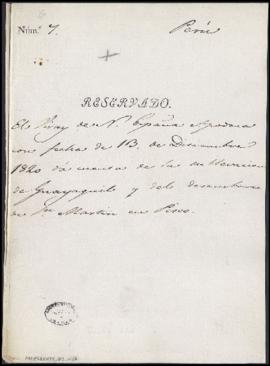 Perú
Núm.º 7.
RESERVADO.
El Virey de N.ª España
con fecha de 13 de Diciembre
1820 dá cuenta de la
de Guayaquil y del desembarco
de Sn. Martin en Pisco.